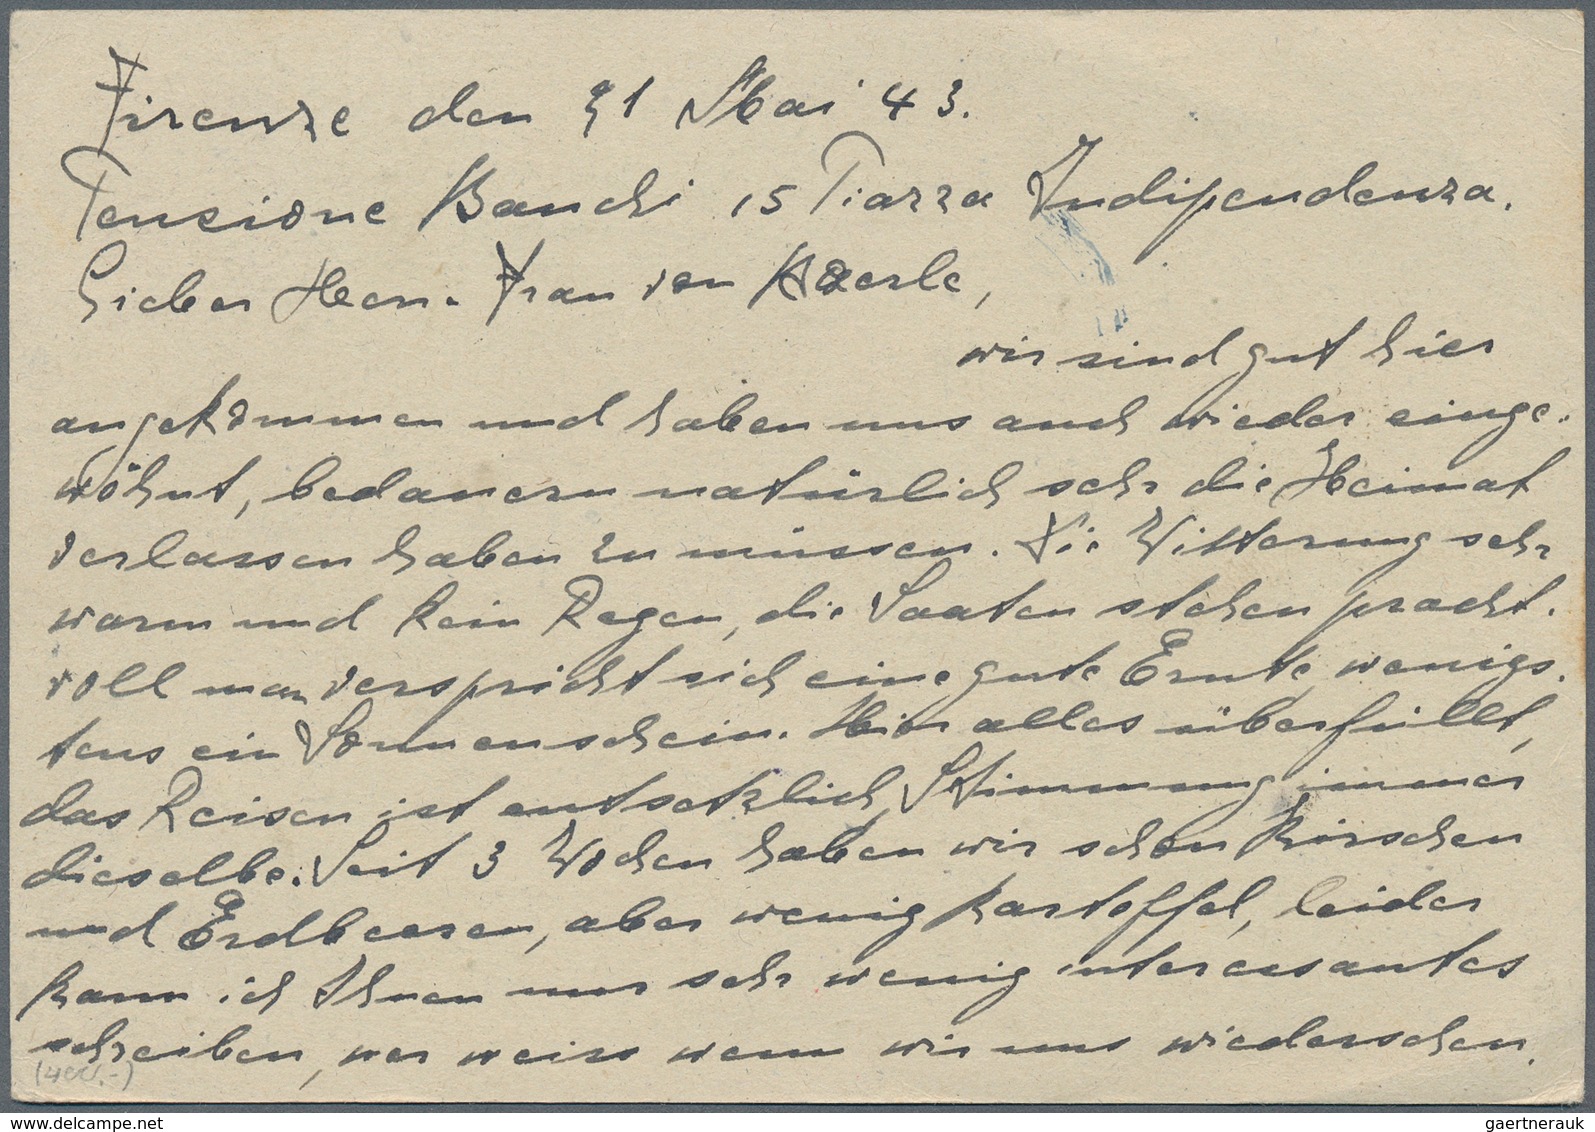 Firenze den 21 Mai 43.
Pensione Banchi 15 Piazza Indipendenza.
Lieber Herr. Frau von
wir sind gut hier
angekommen und haben uns auch wieder einge-
wöhnt, bedauern natürlich sehr die Heimat
verlassen haben zu müssen. Die Witterung sehr
warm und kein Regen, die Saaten stehen pracht.
voll man verspricht sich eine gute Ernte, wenigs.
tens ein Sonnenschein. Hier alles überfüllt,
das Reisen ist entsetzlich, Stimmung immer
dieselbe. Seit 3 Wochen haben wir schon Kirschen
und Erdbeeren, aber wenig Kartoffel, leider
kann ich Ihnen nur sehr wenig interessantes
schreiben, wer weiss wenn wir uns wiedersehen.
(400.-)
gaertnerauk